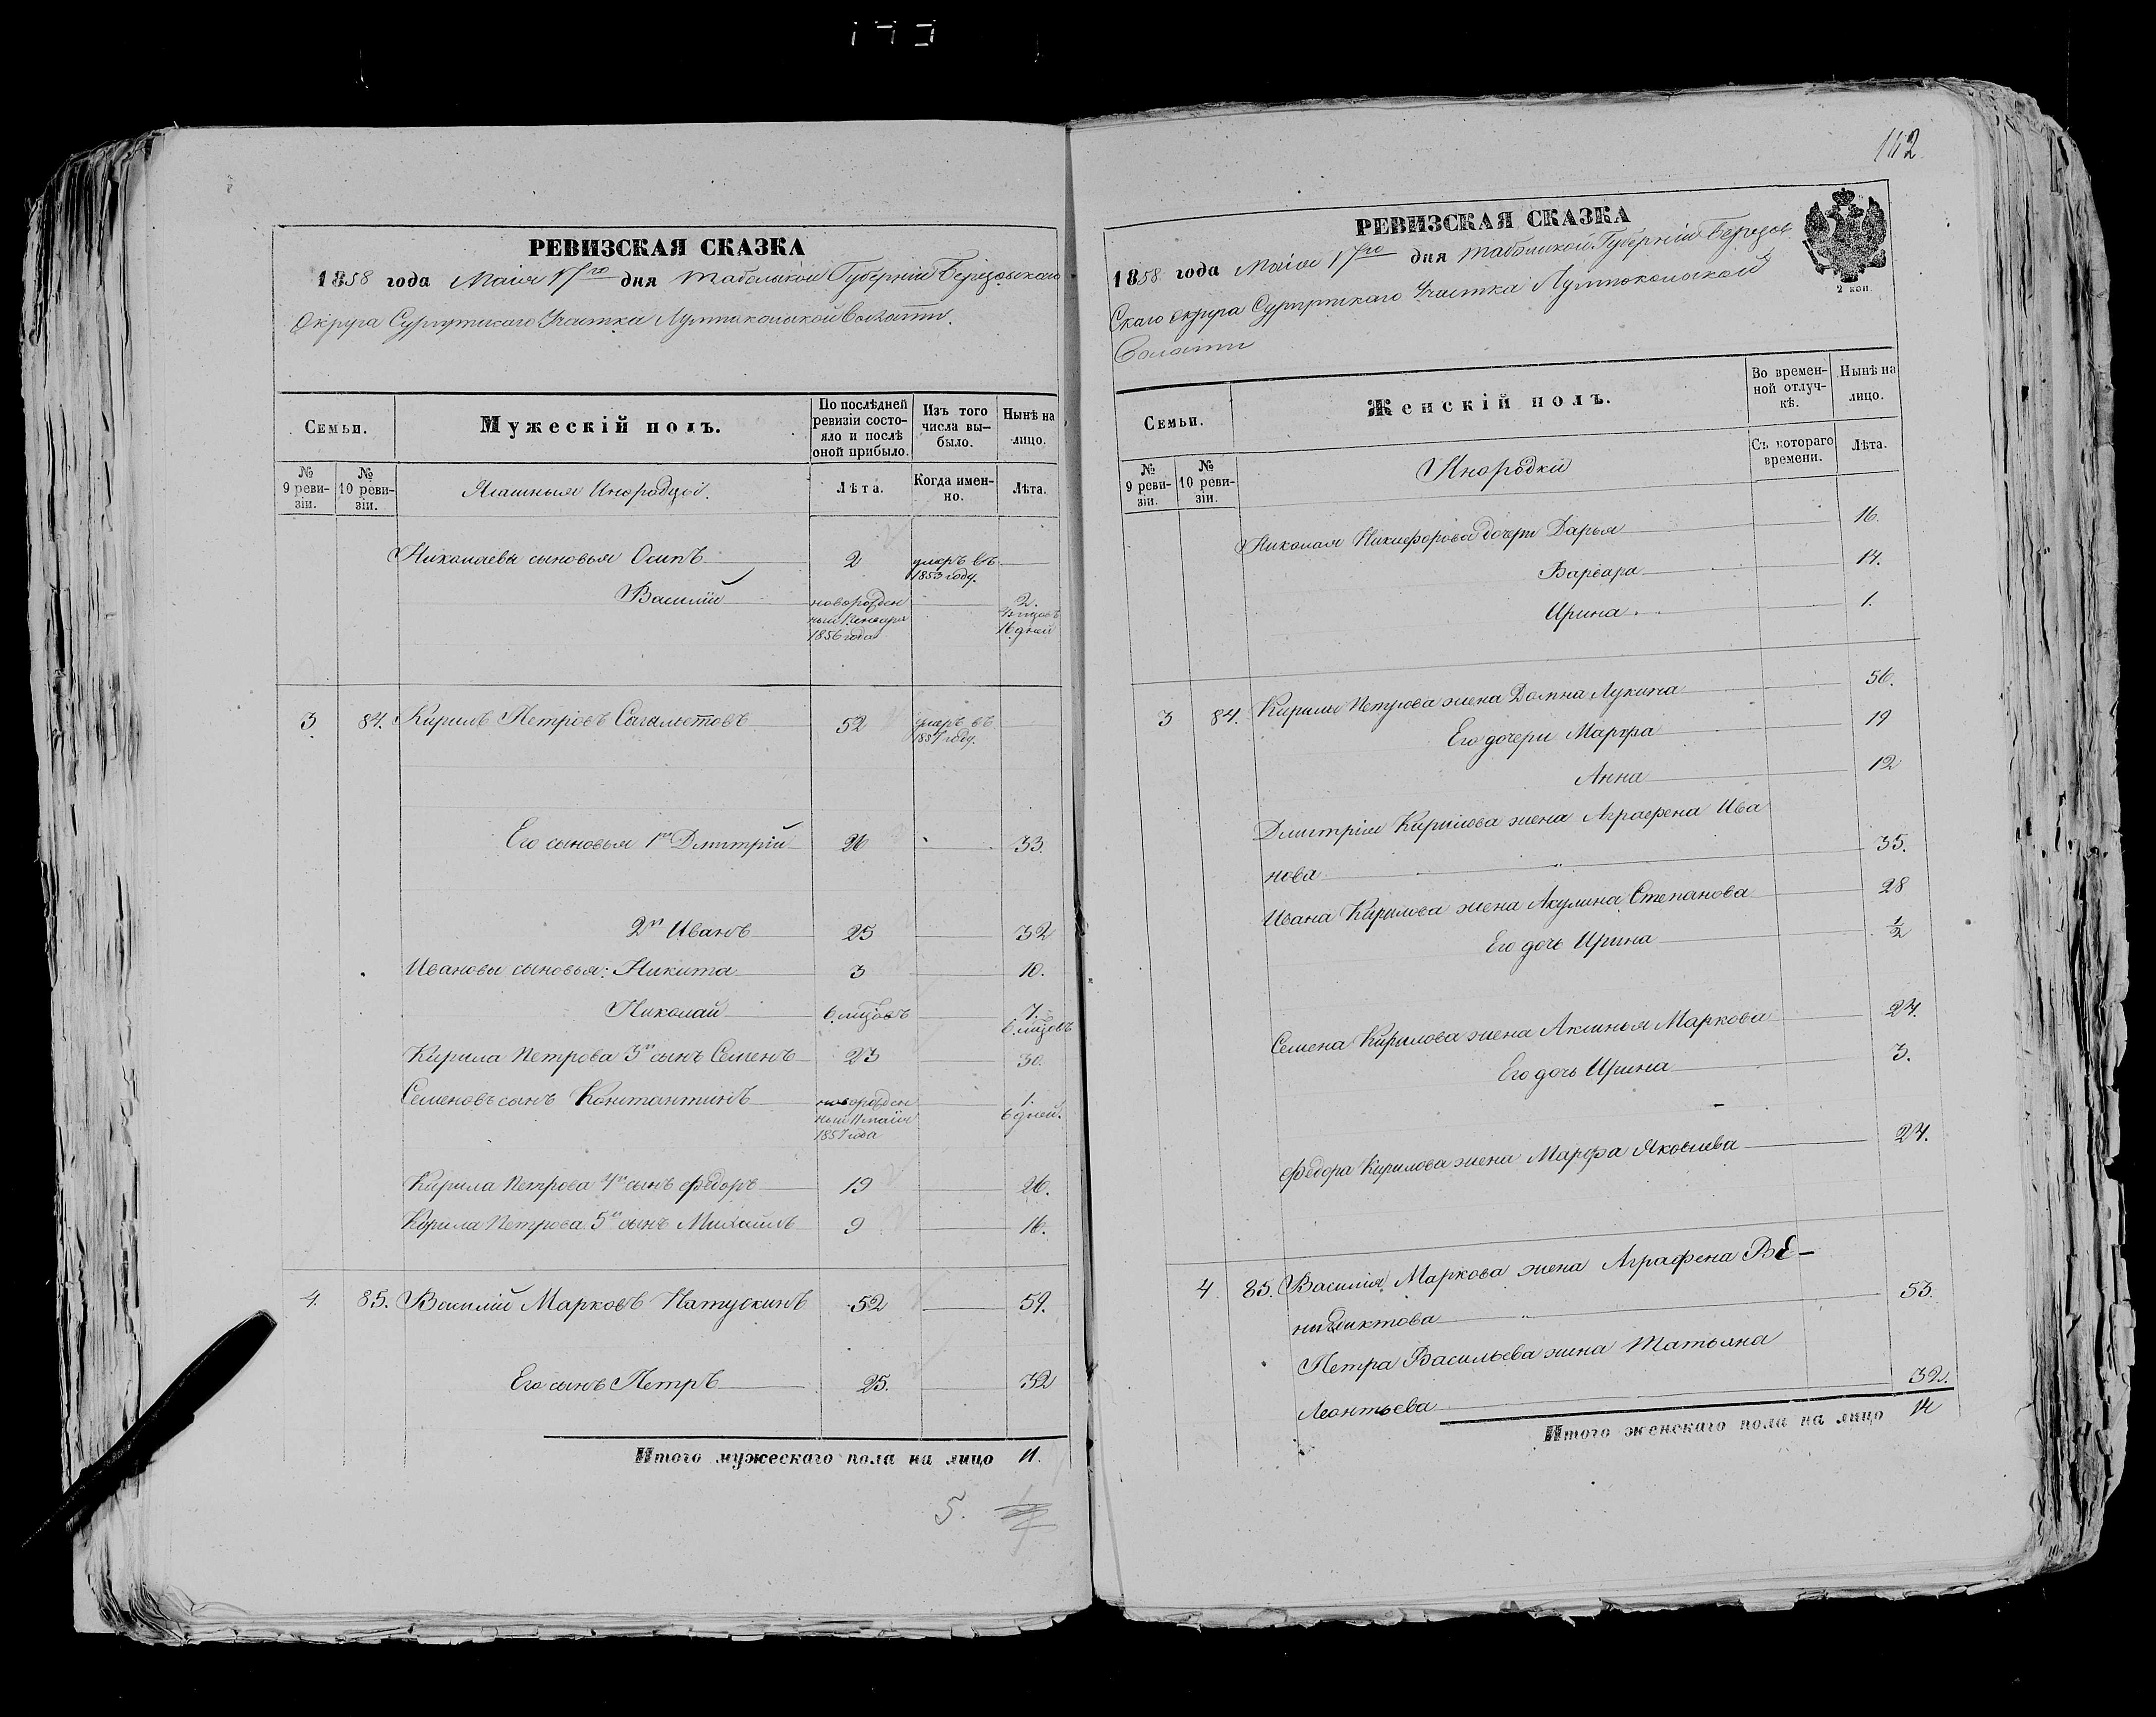 142
РЕВИЗСКАЯ СКАЗКА
1858 года Маія 17го дня Тобольской Губерніи Березовскаго
Округа Сургутскаго Участка Лумпокольской волости.
Семьи.
Мужескій полъ.
По послѣдней
ревизіи состо-
яло и послѣ
оной прибыло.
Изъ того
числа вы-
было.
Нынѣ на
лицо.
№
9 реви-
зіи.
№
10 реви-
зіи.
Ясашныя Инородцы.
Лѣта.
Когда имен-
но.
Лѣта.
Николаевы сыновья Осипъ 2 умеръ въ
1853 году.
Василій новорожден 2.
ный 1 января 4 мцовъ
1856 года 16 дней
3 84. Кирилъ Петровъ 52 умеръ въ
1857 году.
Его сыновья 1й Дмитрій 26 33.
2й Иванъ 25 32
Ивановы сыновья: Никита 3 10.
Николай 6 мцовъ 7.
6 мцовъ
Кирила Петрова 3й сынъ Семенъ 23 30.
Семеновъ сынъ Константинъ новорожден 1.
ный 11 маія 6 дней.
1857 года
Кирила Петрова 4й сынъ Федоръ 19 26.
Кирила Петрова 5й сынъ Михайлъ 9 16.
4. 85. Василій Марковъ Натускинъ 52 59.
Его сынъ Петръ 25. 32
Итого мужескаго пола на лицо 11.
5.
РЕВИЗСКАЯ СКАЗКА
1858 года Маія 17го дня Тобольской Губерніи Березов
Скаго округа Сургутскаго Участка Лумпокольской
Волости
2 коп.
Семьи.
Женскій полъ.
Во времен-
ной отлуч-
кѣ.
Нынѣ на
лицо.
№
9 реви-
зіи.
№
10 реви-
зіи.
Инородки
Съ котораго
времени.
Лѣта.
Николая Никифорова дочери Дарья 16.
Варвара 14.
Ирина 1.
3 84. Кирилы Петрова жена Домна Лукина 56.
Его дочери Марфа 19
Анна 12
Дмитрія Кирилова жена Аграфена Ива
нова 35.
Ивана Кирилова жена Акулина Степанова 28
Его дочь Ирина 1/2
Семена Кирилова жена Аксинья Маркова 24.
Его дочь Ирина 3.
Федора Кирилова жена Марфа Яковлева 24.
4 85. Василія Маркова жена Аграфена Ве-
недиктова 53.
Петра Васильева жена Татьяна
Леонтьева 32.
Итого женскаго пола на лицо 14